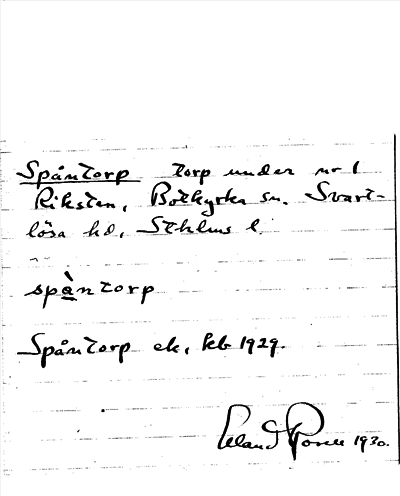 Spåntorp torp under nr 1
Riksten, Botkyrka sn. Svart-
lösa hd, Sthlms l.
spå̀ntorp
Spåntorp ek, kb 1929.
Roland 1930.